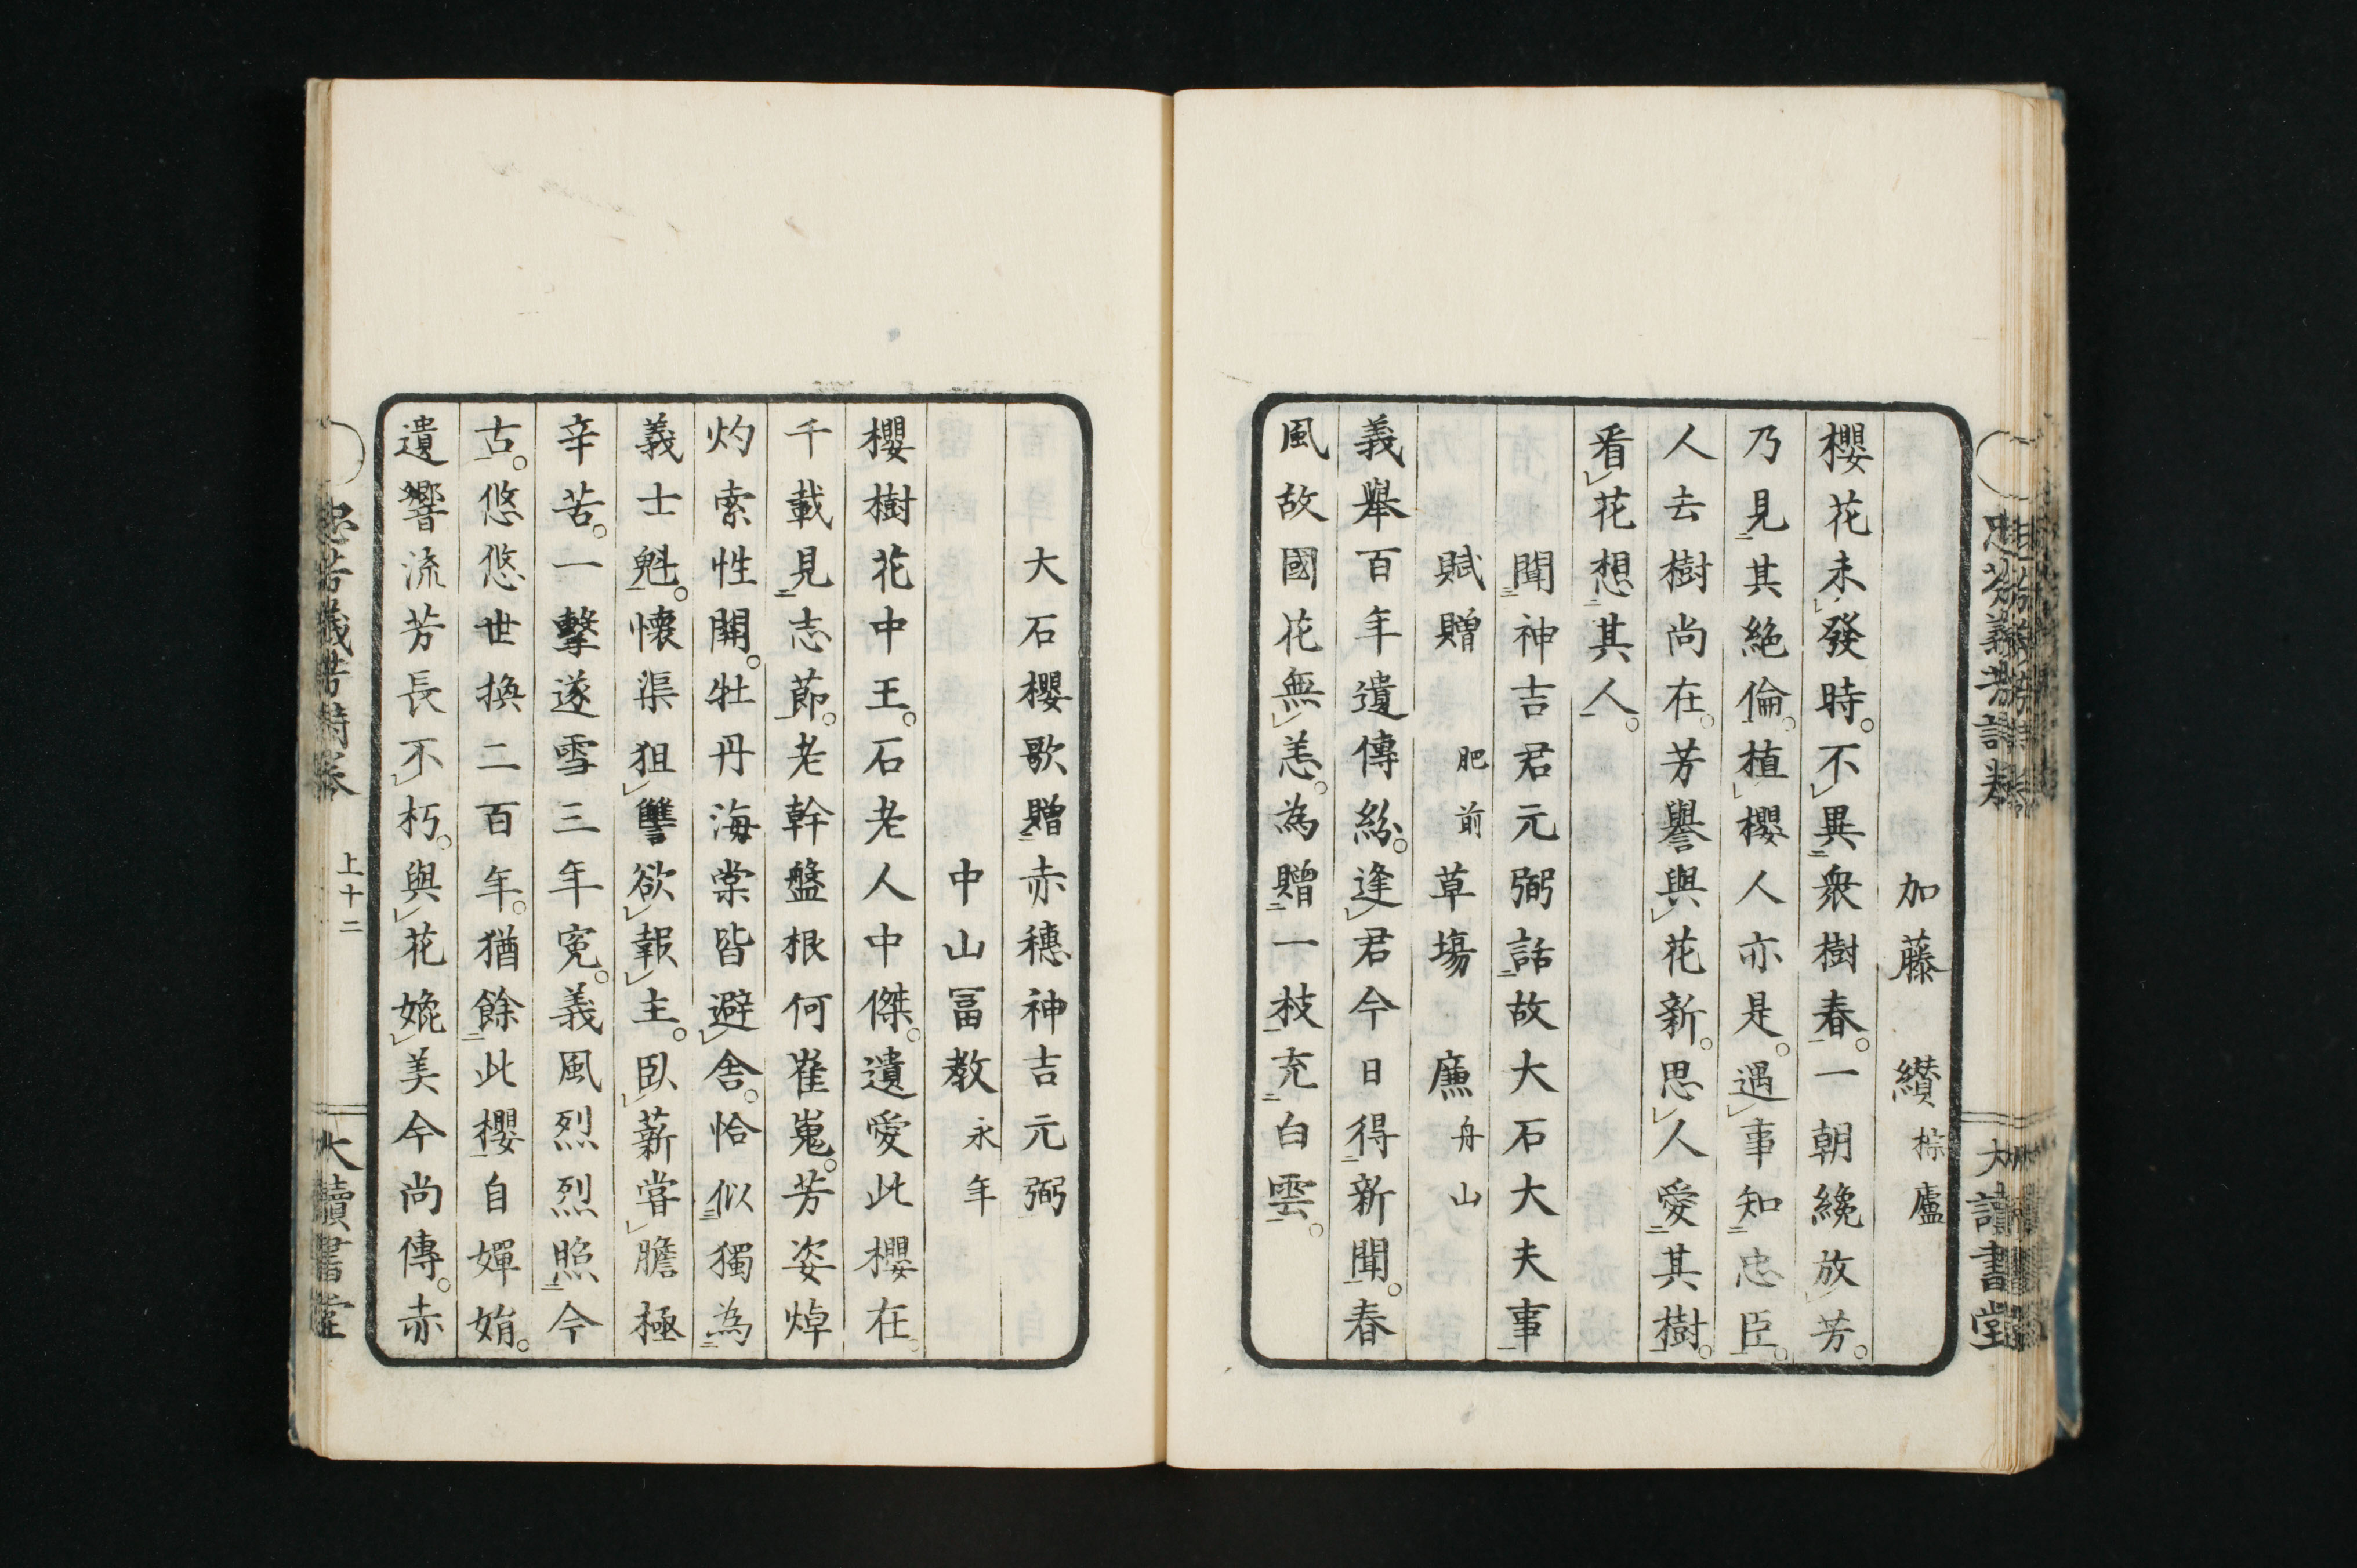 加藤纉棕廬
櫻花未發時。不異衆樹春。一朝纔放芳。
乃見其絶倫。植櫻人亦是。遇事知忠臣。
人去樹尚在。芳譽與花新。思人愛其樹。
看花想其人。
聞神吉君元弼話故大石大夫事
賦贈肥前草場廉舟山
義舉百年遺傳紛。逢君今日得新聞。春
風故國花無恙。為贈一枝充白雲。
忠芬義芳詩卷
大讀書堂
大石櫻歌贈赤穗神吉元弼
中山冨教永年
櫻樹花中王。石老人中傑。遺愛此櫻在。
千載見志節。老幹盤根何崔嵬。芳姿焯
灼索性開。牡丹海棠皆避舎。恰似獨為
義士魁。懷渠狙讐欲報主。臥薪嘗膽極
辛苦。一擊遂雪三年寃。義風烈烈照今
古。悠悠世換二百年。猶餘此櫻自嬋娟。
遺響流芳長不朽。與花媲美今尚傳。赤
忠芬義芳詩卷
上十二
大讀書堂